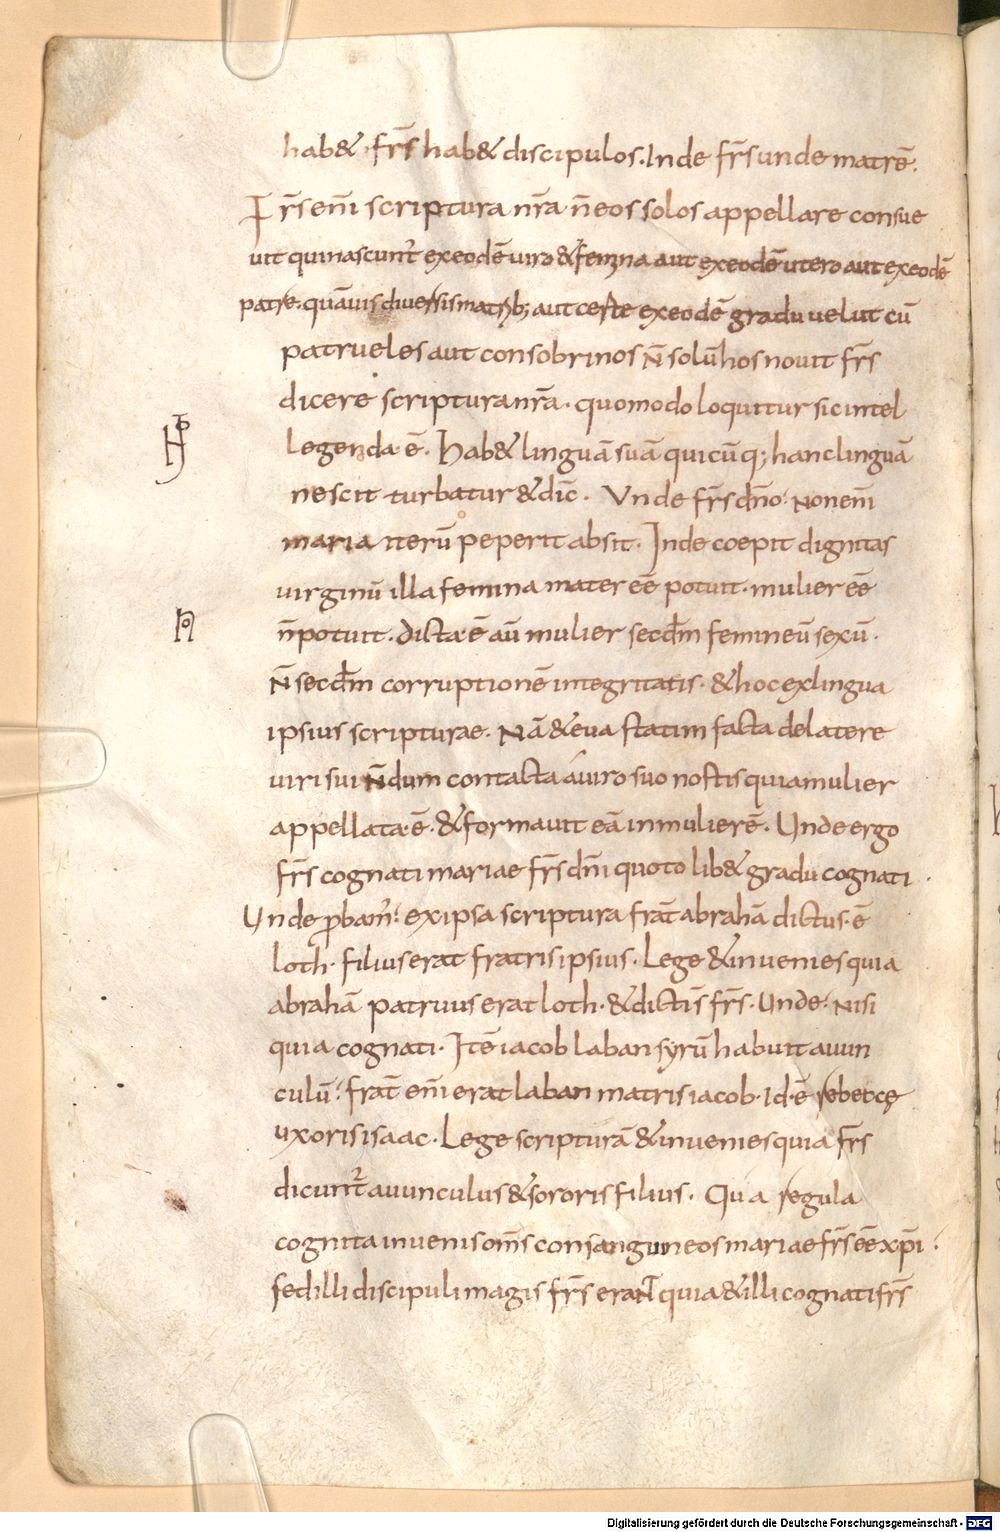 hab& · fr̅s hab& discipulos. Inde fr̅s unde matrē.
Fr̅s eni̅ scriptura nr̅a n̅ eos solos appellare consue
uit qui nascunt̅ ex eodē uiro & femina aut ex eodē utero aut ex eodē
patre. quāuis diuersis matrib; aut certe ex eodē gradu uelut cū
patrueles aut consobrinos N̅ solū hos nouit fr̅s
dicere scriptura nr̅a. quomodo loquitur sic intel
legenda · ē. Hab& linguā suā quicūq; hanc linguā
nescit turbatur & dic̅. Unde fr̅s dn̅o? Non eni̅
maria iterū peperit absit. Inde coepit dignitas
virginū illa femina mater eē potuit. mulier eē
n̅ potuit. dicta · ē au̅ mulier secdm̅ femineū sexū.
N̅ secdm̅ corruptionē integritatis. & hoc ex lingua
ipsius scripturae. Nā & eua statim facta de latere
viri sui N̅dum contacta a uiro suo nostis quia mulier
appellata · ē. & formauit eā in mulierē. Unde ergo
fr̅s cognati mariae fr̅s dn̅i quoto lib& gradu cognati.
Unde p̱bam̅? ex ipsa scriptura frat̅ abrahā dictus · ē
loth. filius erat fratris ipsius. Lege & inuenies quia
abrahā patruus erat loth. & dicti s̅ fr̅s. Unde? Nisi
quia cognati. Itē iacob laban syrū habuit auun
culū? frat̅ eni̅ erat laban matris iacob. Id · ē rebeccę
uxoris isaac. Lege scripturā & inuenies quia fr̅s
dicunt̅ auunculus & sororis filius. Qua regula
cognita inuenis om̅s consanguineos mariae fr̅s eē xp̅i?
sed illi discipuli magis fr̅s eraNT quia & illi cognati fr̅s
Digitalisierung gefördert durch die Deutsche Forschungsgemeinschaft - DFG